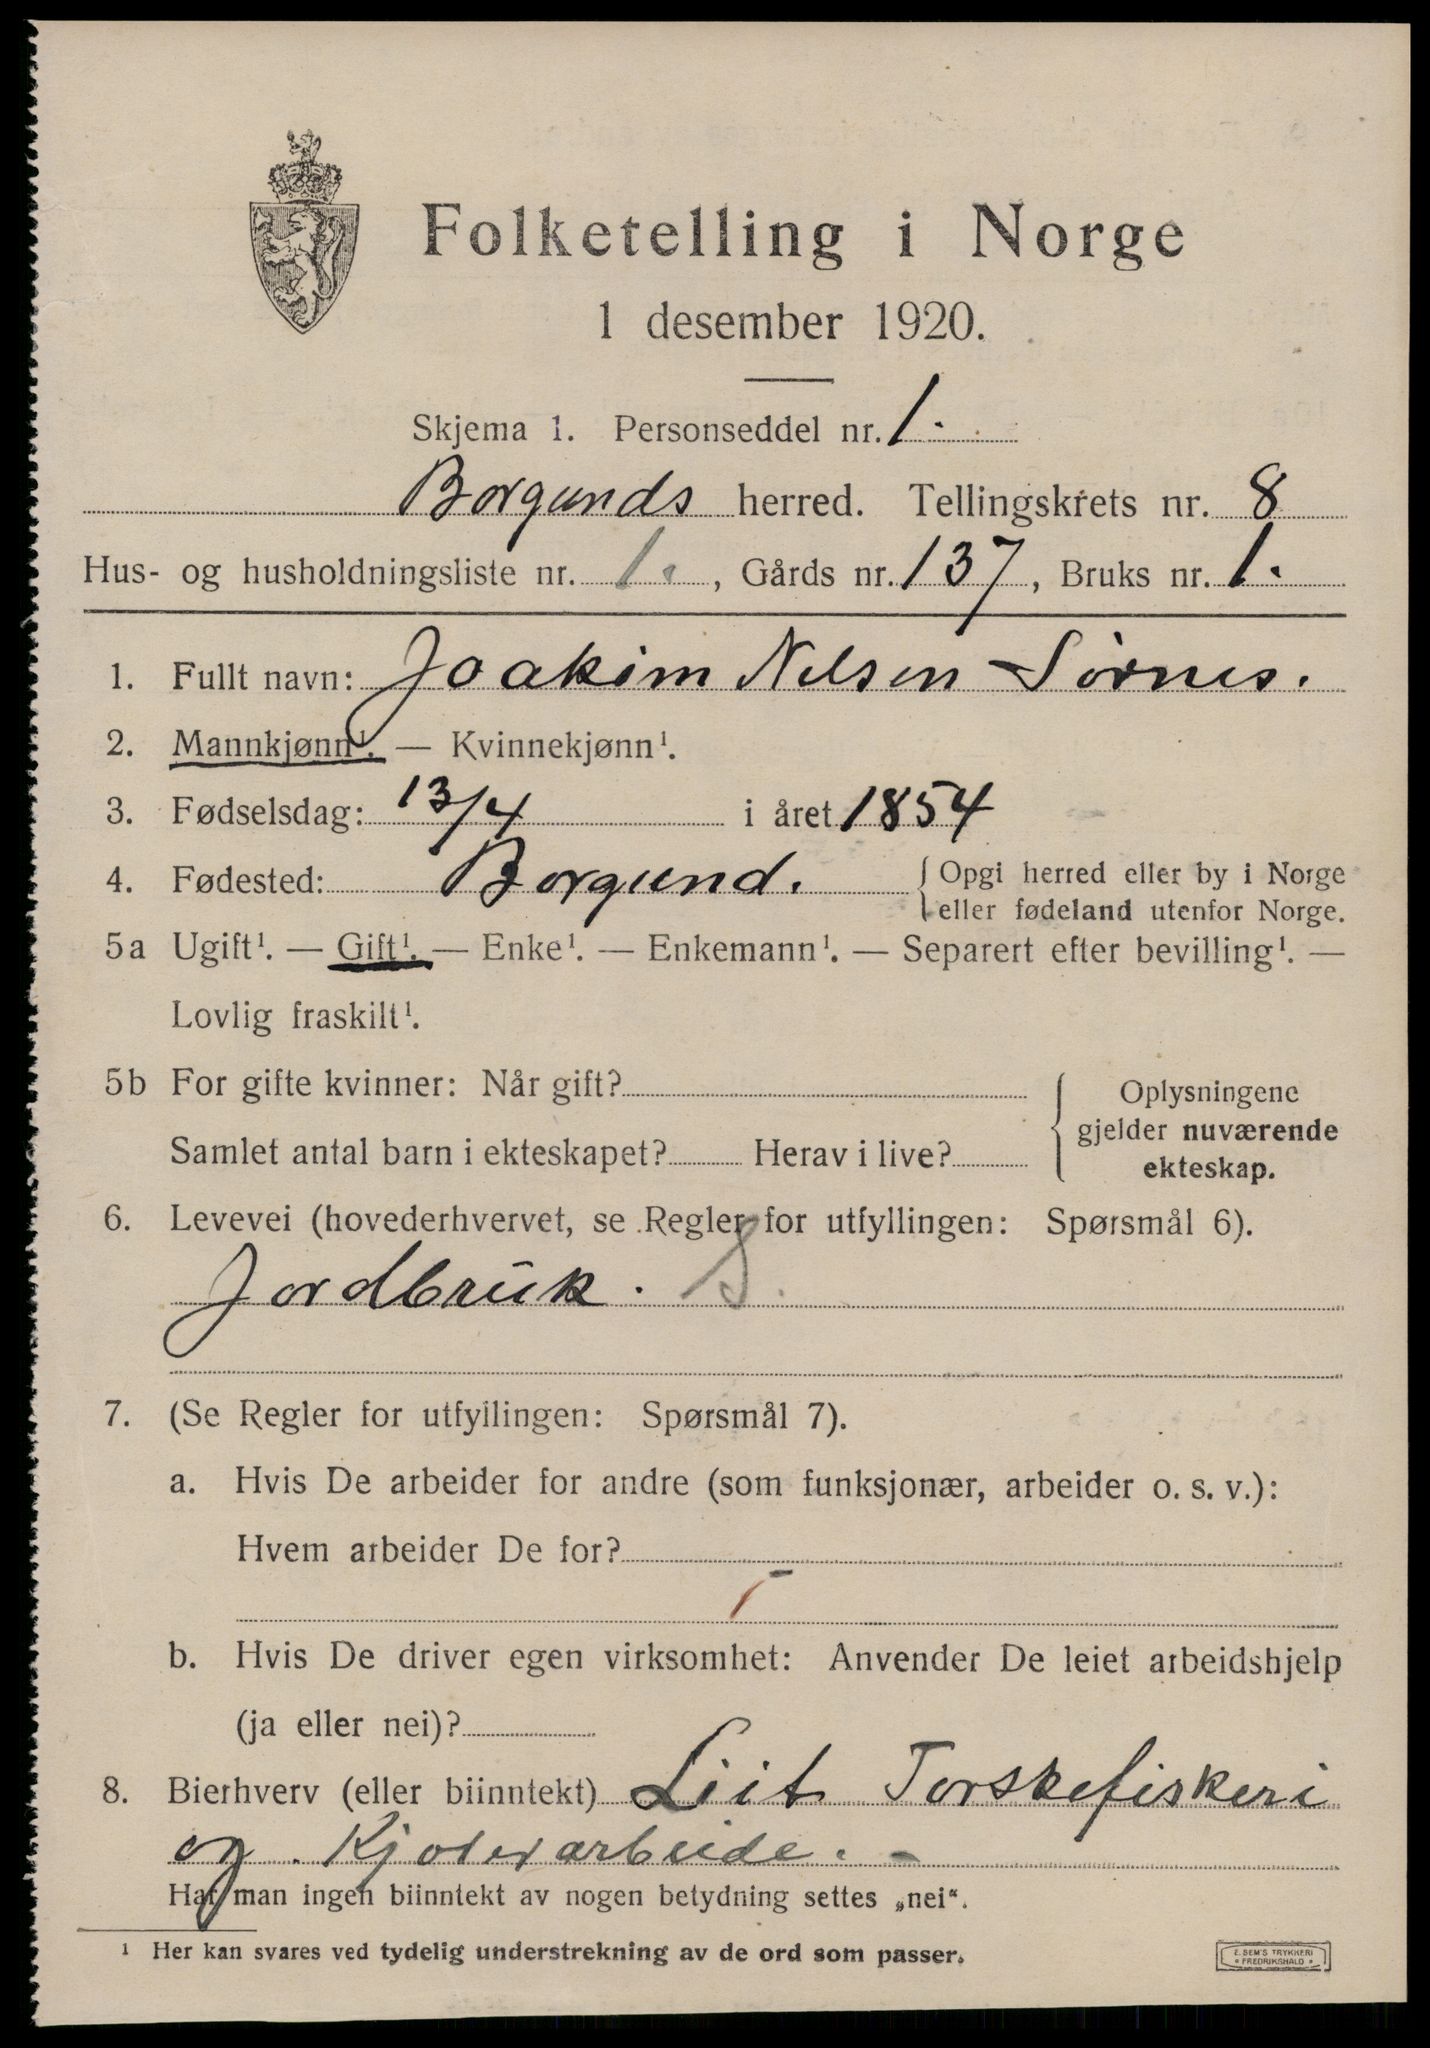 Folketelling i Norge
1 desember 1920.
Skjema 1. Personseddel nr. 1.
Borgunds herred. Tellingskrets nr. 8
Hus- og husholdningsliste nr. 1., Gårds nr. 137, Bruks nr. 1.
1. Fullt navn: Joakim Nilsen Sørnes.
2. Mannkjønn¹. — Kvinnekjønn¹.
3. Fødselsdag: 13/4 i året 1854
4. Fødested: Borgund. { Opgi herred eller by i Norge
eller fødeland utenfor Norge.
5a Ugift¹. — Gift¹. — Enke¹. — Enkemann¹. — Separert efter bevilling¹. —
Lovlig fraskilt¹.
5b For gifte kvinner: Når gift?
Samlet antal barn i ekteskapet? Herav i live?
Oplysningene
gjelder nuværende
ekteskap.
6. Levevei (hovederhvervet, se Regler for utfyllingen: Spørsmål 6).
Jordbruk. S.
7. (Se Regler for utfyllingen: Spørsmål 7).
a. Hvis De arbeider for andre (som funksjonær, arbeider o. s. v.):
Hvem arbeider De for?
b. Hvis De driver egen virksomhet: Anvender De leiet arbeidshjelp
(ja eller nei)?
8. Bierhverv (eller biinntekt) Litt Torskefiskeri
og
Har man ingen biinntekt av nogen betydning settes „nei“.
¹ Her kan svares ved tydelig understrekning av de ord som passer.
E. SEM'S TRYKKERI
• FREDRIKSHALD •